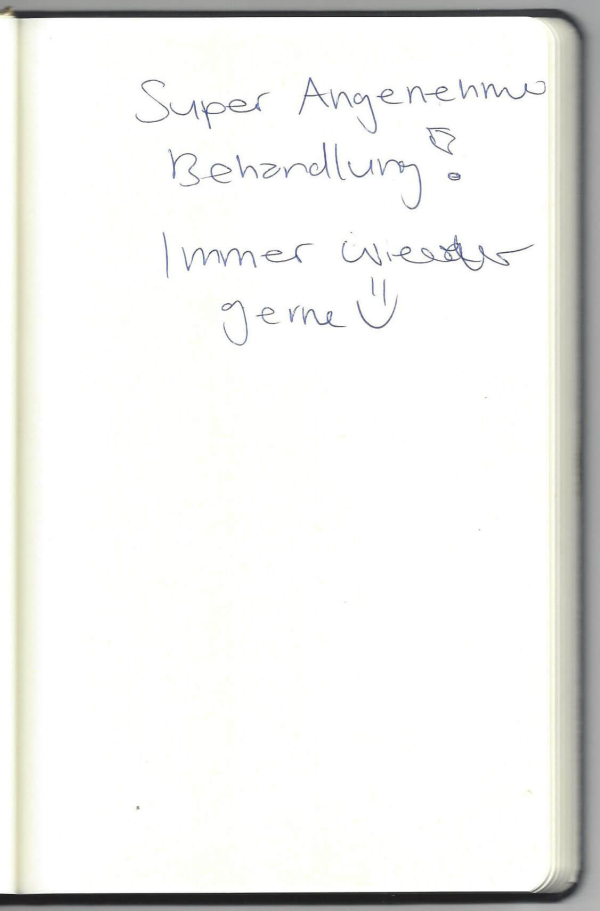 Super Angenehme
Behandlung!
Immer wieder
gerne